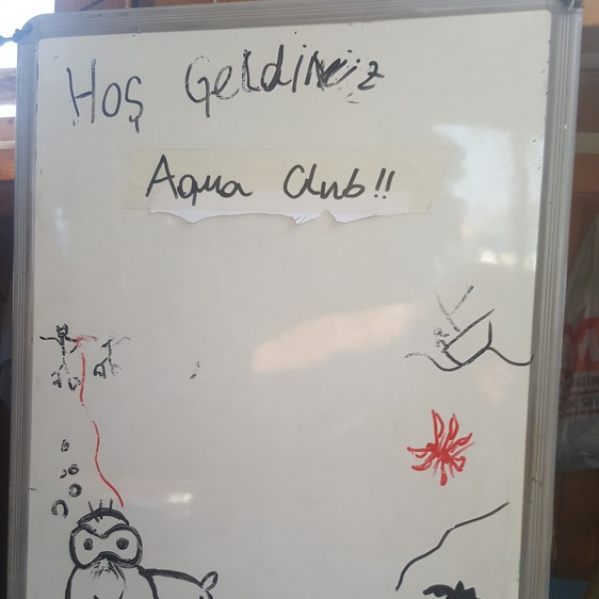 Hoş Geldiniz
Aqua Club!!